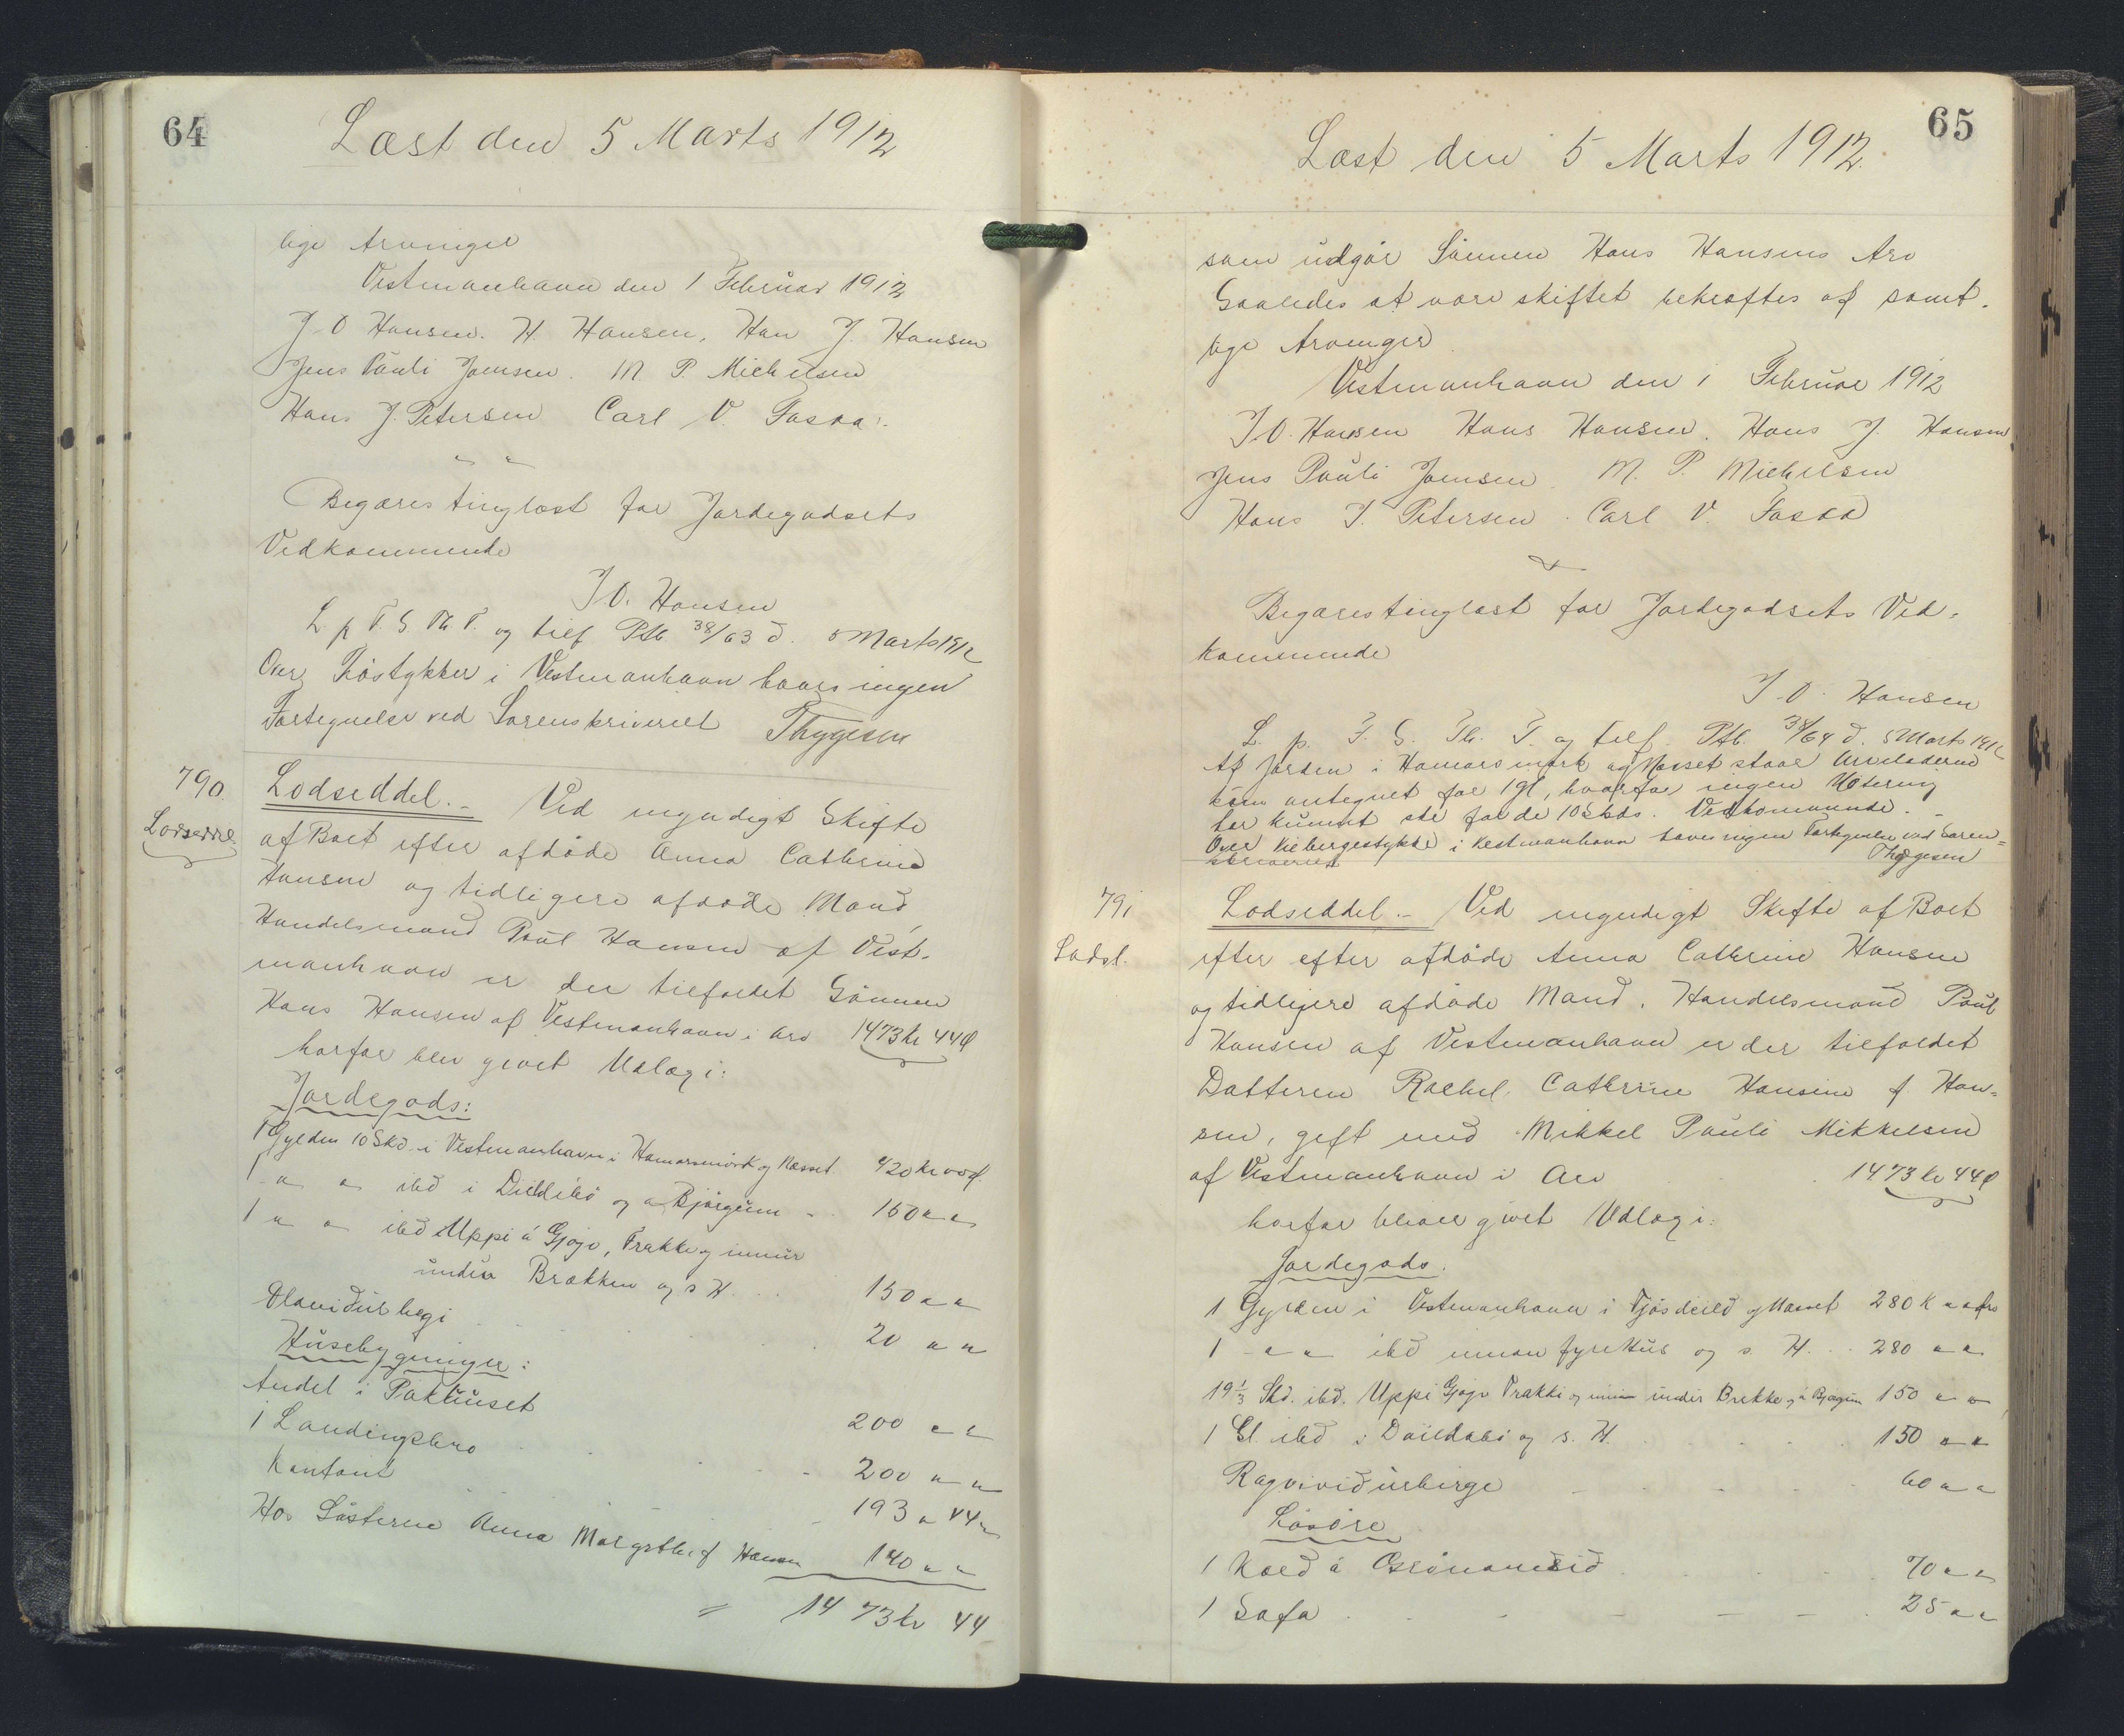 64
Læst den 5 Marts 1912
lige Arvinger
Vestmanhavn den 1 Februar 1912
J. O Hansen. H. Hansen, Han J. Hansen
Jens Pauli Joensen. M. P. Michelsen
Hans J. Petersen Carl V. Fasaa.
Begæres tinglæst for Jordegodsets
Vedkommende
J O. Hansen
L. p T. S. Th T. og tilf Ptb 38/63 d. 5 Marts 1912
Over Løstykker i Vestmanhavn haves ingen
Fortegnelse ved Sorenskriveriet Thygesen
790.
Lodseddel
Lodseddel. - Ved myndigt Skifte
af Boet efter afdøde Anna Cathrine
Hansen og tidligere afdøde Mand,
Handelsmand Poul Hansen af Vest-
manhavn er der tilfaldet Sønnen
Hans Hansen af Vestmanhavn i Arv 1473 kr 44 Ø
horfor blev givet Udlæg i:
Jordegods:
1 Gylden 10 Skd. i Vestmanhavn i Hamarsmørk og Nesset 420 kr 00 Ø.
1 " " ibd i Dilldibø og a Bjørgum - 150 " "
1 " " ibd Uppi á Gjógv, Trakke og innur
undir Brækken og s H. .. 150 " "
Olaviður hegi 20 " "
Husebygninger:
Andel i Pakhuset 200 " "
1 Landingsbro 200 " "
Kontant 193 " 44 "
Hos Søsteren Anna Margrethe f Hansen 140 " "
= 1473 kr 44
65
Læst den 5 Marts 1912.
som udgør Sønnen Hans Hansens Arv
Saaledes at være skiftet bekræftes af samt-
lige Arvinger
Vestmanhavn den 1 Februar 1912
J. O. Hansen Hans Hansen. Hans J. Hansen
Jens Pauli Joensen. M. P. Michelsen
Hans J. Petersen. Carl V. Fasaa
Begæres tinglæst for Jordegodsets Ved-
kommende
J. O. Hansen
L. p. T. S. Th. T. og tilf. Ptb. 38/64 d. 5 Marts 1912
Af Jorden i Hamarsmørk og Nesset staar Arveladeren
kun antegnet for 1 gl, hvorfor ingen Notering
har kunnet ske for de 10 Skds. Vedkommende. -
Over Kebergestykke i Vestmanhavn haves ingen Fortegnelse ved Soren-
skriveriet Thygesen
791
Lodsl.
Lodseddel. - Ved myndigt Skifte af Boet
efter efter afdøde Anna Cathrine Hansen
og tidligere afdøde Mand. Handelsmand Poul
Hansen af Vestmanhavn er der tilfaldet
Datteren Rachel Cathrine Hansine f. Han-
sen, gift med Mikkel Pauli Mikkelsen
af Vestmanhavn i Arv 1473 kr 44 Ø
horfor bliver givet Udlæg i:
Jordegods.
1 Gylden i Vestmanhavn i Fjósdeild og Nesset 280 K " "
1 - " " ibd innan fyri Hús og s. H. .. 280 " "
19 1/3 Skd. ibd. Uppi Gjógv Trakki og innan undir Brekke og á Bjørgum 150 " "
1 Gl. ibd i Daildabø og s. H. 150 " "
Ragviviðurbirge 60 " "
Løsøre
1 Kold á Osrónandið 70 " "
1 Sofa 25 " "